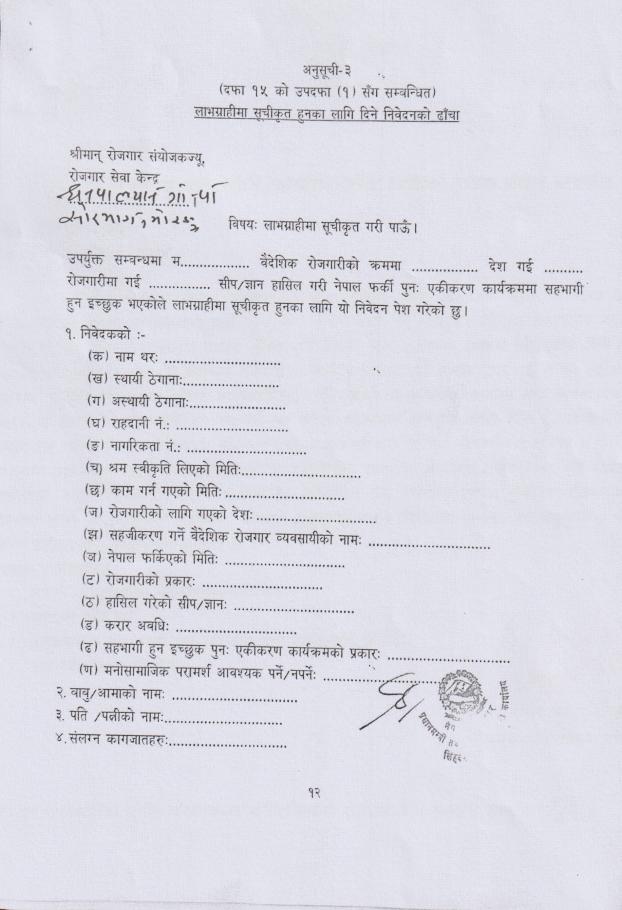 अनुसूची-३
(दफा १५ को उपदफा (१) सँग सम्बन्धित)
लाभग्राहीमा सूचीकृत हुनका लागि दिने निवेदनको ढाँचा
श्रीमान् रोजगार संयोजकज्यू,
रोजगार सेवा केन्द्र
विषयः लाभग्राहीमा सूचीकृत गरी पाऊँ।
उपर्युक्त सम्बन्धमा म................ वैदेशिक रोजगारीको क्रममा ............... देश गई .........
रोजगारीमा गई .............. सीप/ज्ञान हासिल गरी नेपाल फर्की पुनः एकीकरण कार्यक्रममा सहभागी
हुन इच्छुक भएकोले लाभग्राहीमा सूचीकृत हुनका लागि यो निवेदन पेश गरेको छु।
१. निवेदकको :-
(क) नाम थरः ...........................
(ख) स्थायी ठेगानाः.......................
(ग) अस्थायी ठेगानाः......................
(घ) राहदानी नं.: ..........................
(ङ) नागरिकता नं.: ............................
(च) श्रम स्वीकृति लिएको मितिः............................
(छ) काम गर्न गएको मितिः............................
(ज) रोजगारीको लागि गएको देशः............................
(झ) सहजीकरण गर्ने वैदेशिक रोजगार व्यवसायीको नामः ............................
(ञ) नेपाल फर्किएको मितिः ............................
(ट) रोजगारीको प्रकारः ............................
(ठ) हासिल गरेको सीप/ज्ञानः ............................
(ड) करार अवधिः ............................
(ढ) सहभागी हुन इच्छुक पुनः एकीकरण कार्यक्रमको प्रकारः ............................
(ण) मनोसामाजिक परामर्श आवश्यक पर्ने/नपर्नेः ............................
२. बाबु/आमाको नामः ............................
३. पति /पत्नीको नामः............................
४. संलग्न कागजातहरुः............................
१२